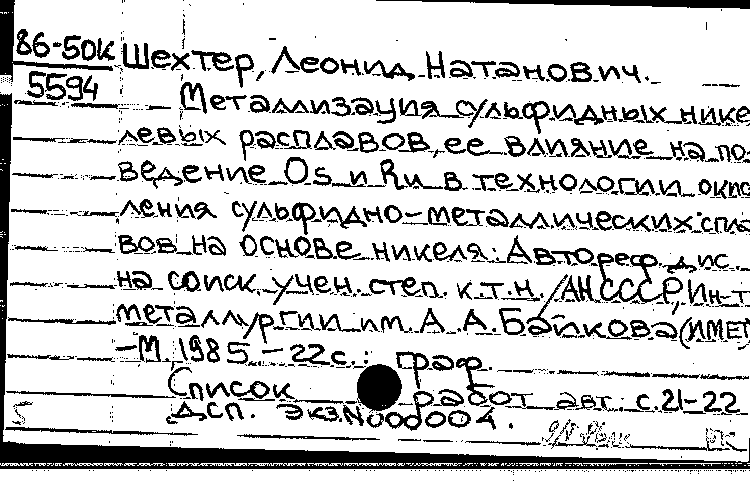 86-50к Шехтер, Леонид Натанович.
5594
Металлизация сульфидных нике
левых расплавов, ее влияние на по-
ведение Os и Ru в технологии окис
ления сульфидно-металлических спла
вов на основе никеля: Автореф. дис.
на соиск. учен. степ. к.т.н. /АН СССР, Ин-т
металлургии им. А.А.Байкова (ИМЕТ)
-М., 1985.-22с.: граф.
Список работ авт.: с.21-22
Дсп. Экз.N000004.
5